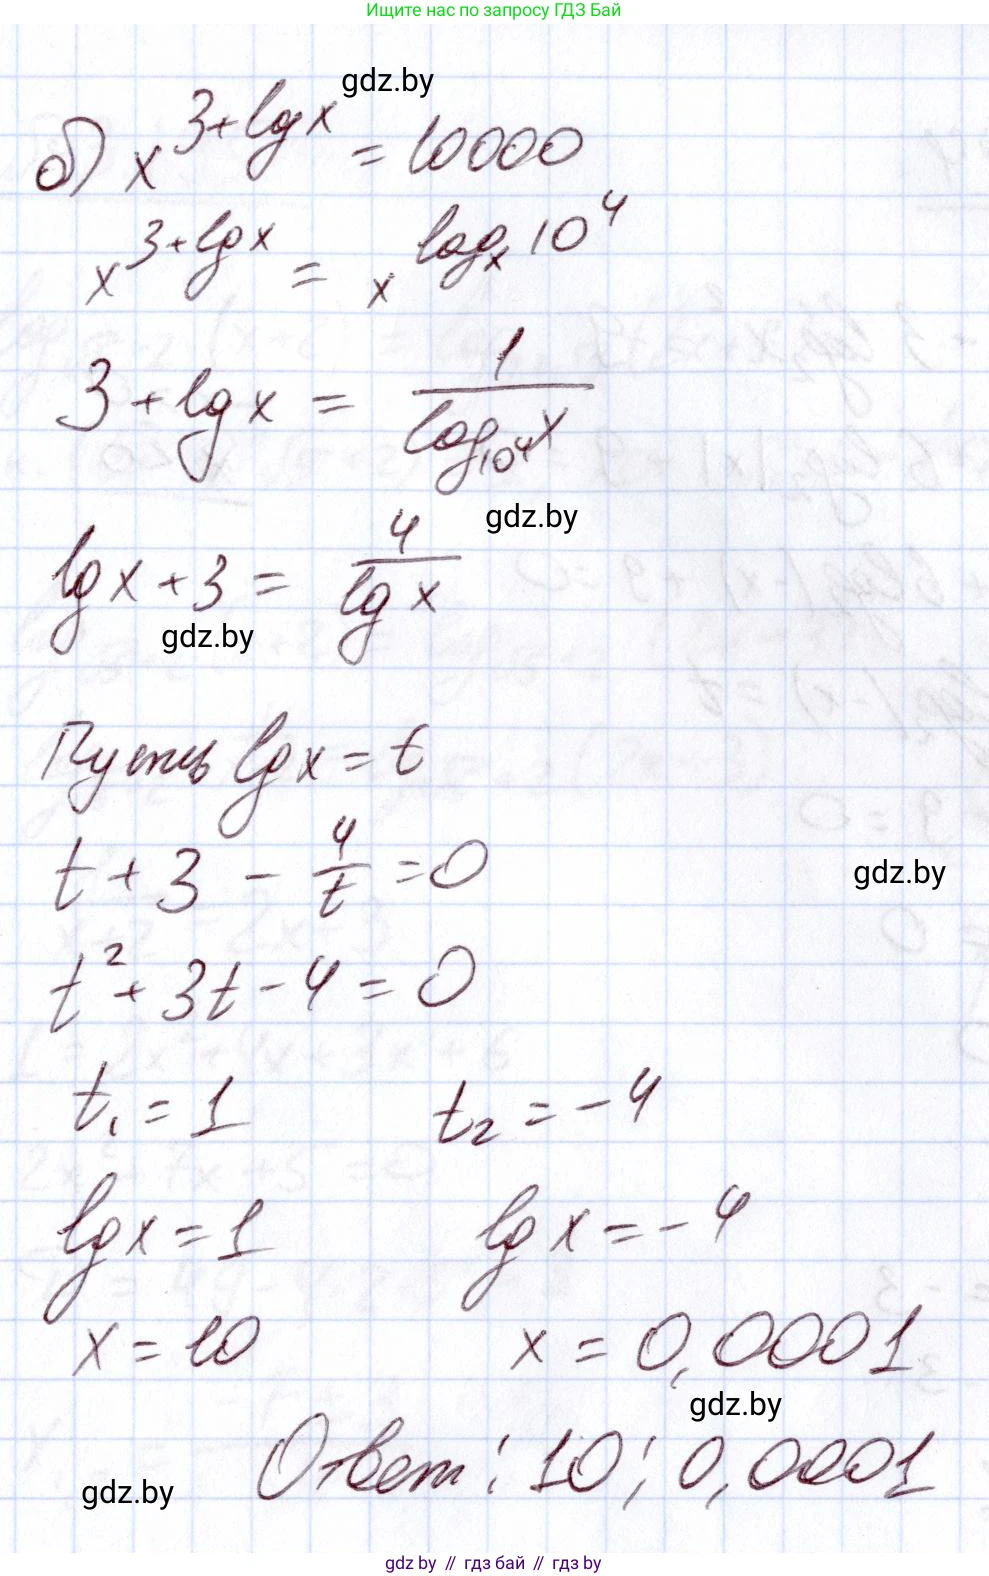 Ищите нас по запросу ГДЗ Бай
gdz.by
б) x^(3+lg x) = 10000
x^(3+lg x) = x^(log_x 10^4)
3 + lg x = 1/(log_(10^4) x)
gdz.by
lg x + 3 = 4/(lg x)
gdz.by
Пусть lg x = t
t + 3 - 4/t = 0
gdz.by
t² + 3t - 4 = 0
t₁ = 1 t₂ = -4
lg x = 1 lg x = -4
x = 10 x = 0,0001
gdz.by
Ответ: 10; 0,0001
gdz.by
gdz by // гдз бай // gdz by